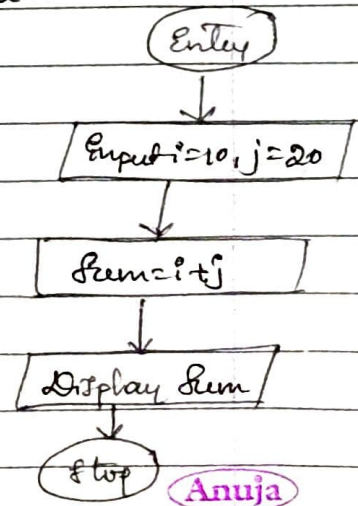 Entry
Input i=10, j=20
Sum=i+j
Display Sum
Stop
Anuja